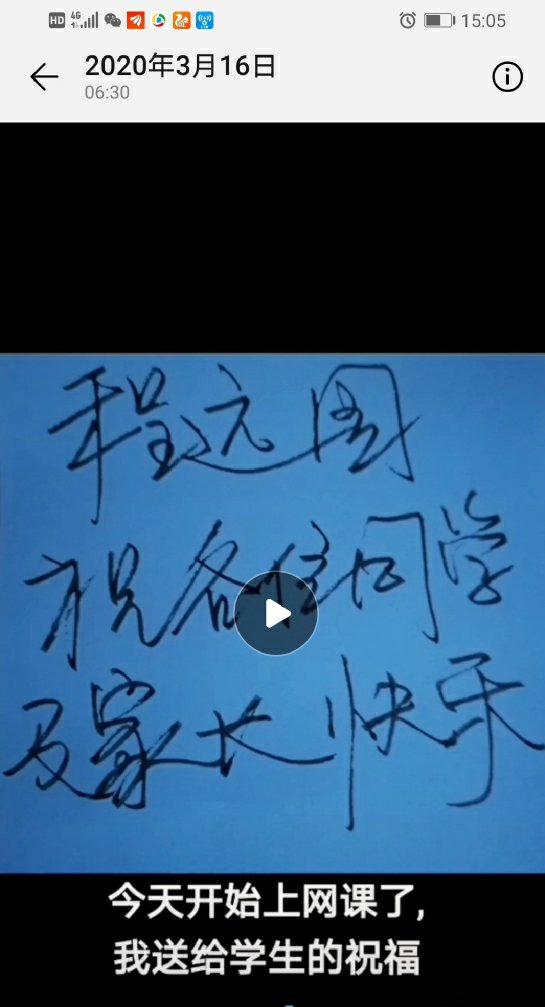 HD 4G 15:05
2020年3月16日
06:30
程远图
祝各位同学
及家长快乐
今天开始上网课了,
我送给学生的祝福